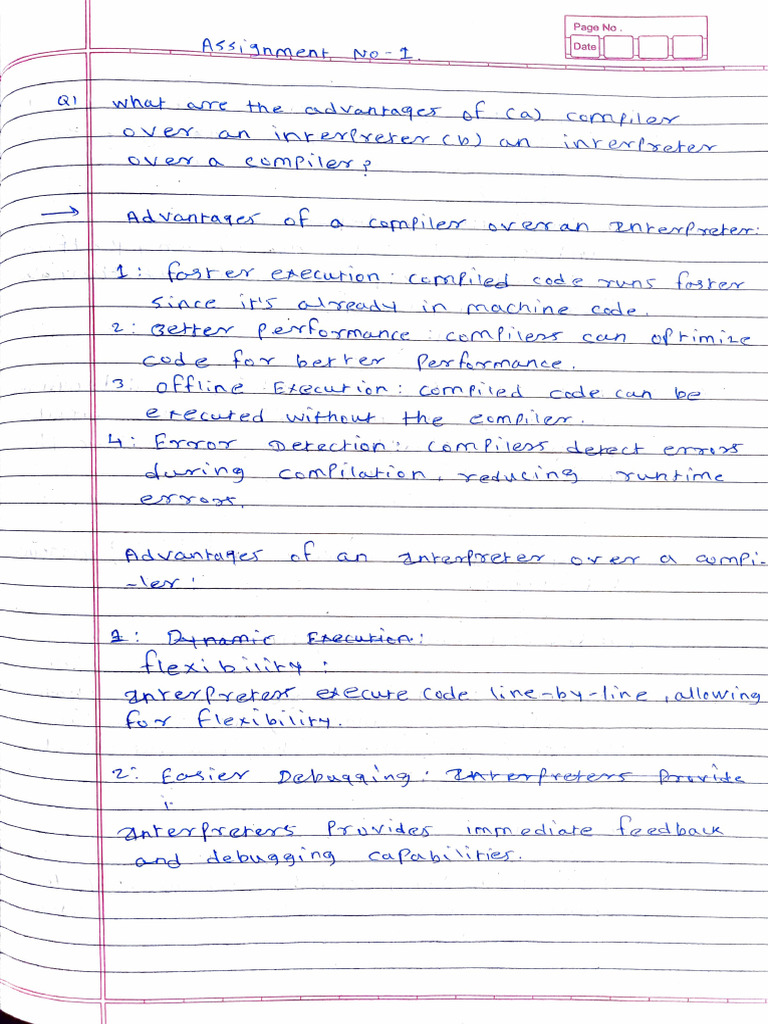 Page No.
Date
Assignment No-1.
Q1 What are the advantages of (a) compiler
over an interpreter (b) an interpreter
over a compiler?
→ Advantages of a compiler over an Interpreter:
1: faster execution: compiled code runs faster
since it's already in machine code.
2: Better Performance: compilers can optimize
code for better performance.
3 Offline Execution: compiled code can be
executed without the compiler.
4: Error Detection: compilers detect errors
during compilation, reducing runtime
errors.
Advantages of an Interpreter over a compi-
-ler:
1: Dynamic Execution:
flexibility:
Interpreters execute code line-by-line, allowing
for flexibility.
2: Easier Debugging: Interpreters Provide
Interpreters Provides immediate feedback
and debugging capabilities.